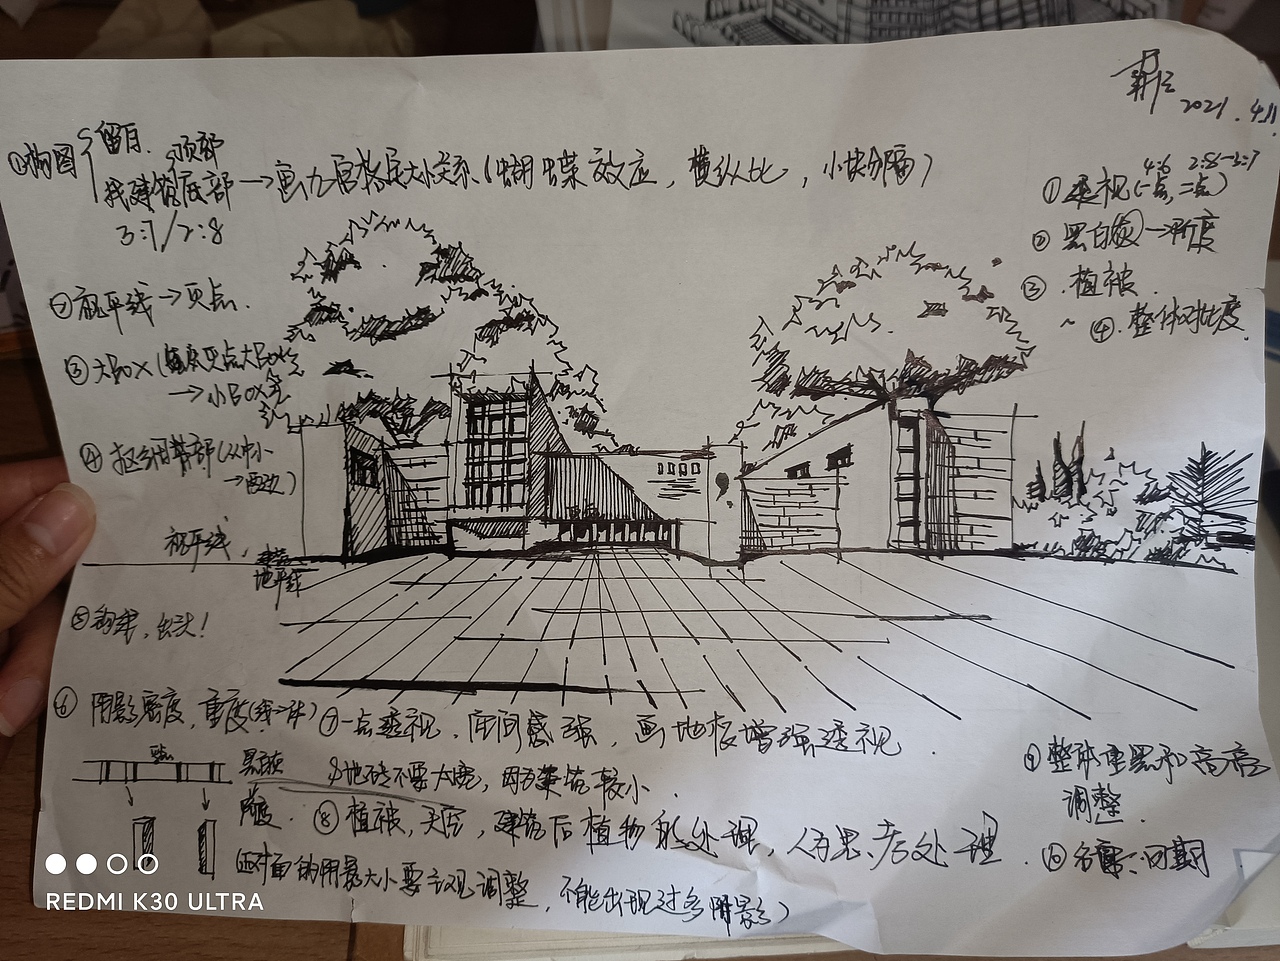 2021.4.11
①构图
留白. 顶部
找建筑底部→画九宫格定大小关系(蝴蝶效应, 横纵比, 小块分隔)
3:7/2:8
②视平线→灭点.
③大BOX(
→小BOX
④抠细节部(从中心
→两边)
视平线,
建筑
地平线
⑤ 出头!
⑥ 阴影密度, 重度
⑦一点透视, 空间感强, 画地板增强透视.
&地砖不要太宽, 因为建筑较小.
⑧植被, 天空, 建筑后植物的处理, 人为思考处理.
(对面的阴影大小要主观调整, 不能出现过多阴影)
⑨整体重黑和高亮
调整.
⑩名字:日期
4:6 2:8→3:7
①透视(一点, 二点)
②黑白灰→阶度
③.植被.
~④.整体对比度.
REDMI K30 ULTRA